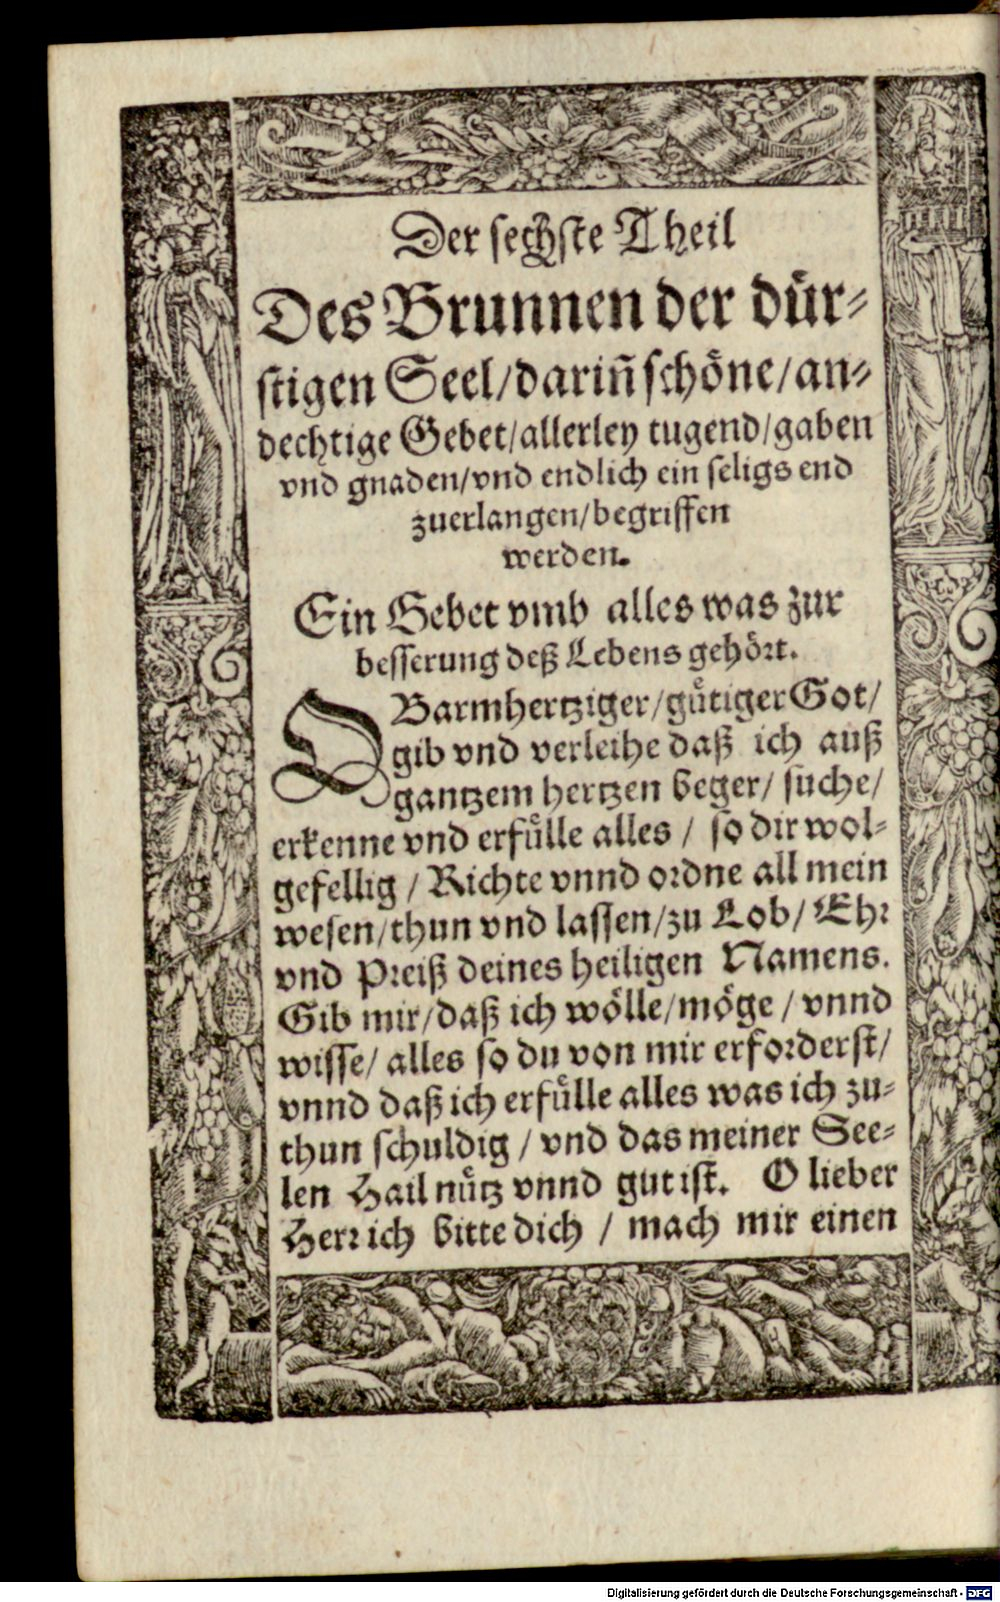 Der sechste Theil
Des Brunnen der dür-
stigen Seel/darin̄ schöne/an-
dechtige Gebet/allerley tugend/gaben
vnd gnaden/vnd endlich ein seligs end
zuerlangen/begriffen
werden.
Ein Gebet vmb alles was zur
besserung deß Lebens gehört.
O Barmhertziger/gütiger Got/
gib vnd verleihe daß ich auß
gantzem hertzen beger/ suche/
erkenne vnd erfülle alles / so dir wol-
gefellig / Richte vnnd ordne all mein
wesen/thun vnd lassen/zu Lob/ Ehr
vnd Preiß deines heiligen Namens.
Gib mir/daß ich wölle/möge / vnnd
wisse/ alles so du von mir erforderst/
vnnd daß ich erfülle alles was ich zu-
thun schuldig / vnd das meiner See-
len Hail nütz vnnd gut ist. O lieber
Herr ich bitte dich / mach mir einen
Digitalisierung gefördert durch die Deutsche Forschungsgemeinschaft - DFG